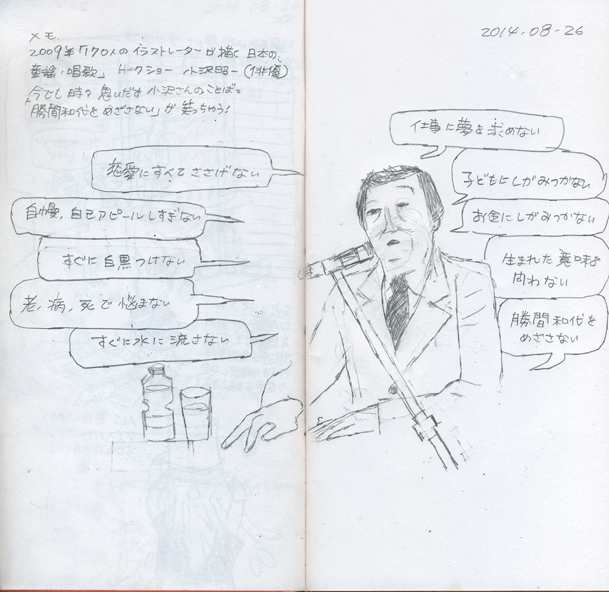 メモ
2009年「170人のイラストレーターが描く日本の、
童謡・唱歌」 トークショー 小沢昭一(俳優)
今でも時々思いだす小沢さんのことば。
「勝間和代をめざさない」が笑っちゃう!
2014.08-26
恋愛にすべてささげない
自慢,自己アピールしすぎない
すぐに白黒つけない
老,病,死で悩まない
すぐに水に流さない
仕事に夢を求めない
子どもにしがみつかない
お金にしがみつかない
生まれた意味を
問わない
勝間和代を
めざさない